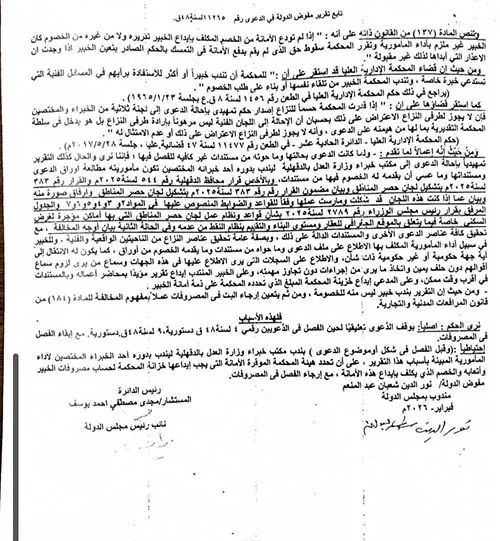 تابع تقرير مفوض الدولة في الدعوى رقم ١١٢٦٥ لسنة ٤٨ق.
وتنص المادة (١٣٧) من القانون ذاته على أنه: "إذا لم تودع الأمانة من الخصم المكلف بإيداع الخبير تقريره ولا من غيره من الخصوم كان
الخبير غير ملزم بأداء المأمورية وتقرر المحكمة سقوط حق الذي لم يقم بدفع الأمانة في التمسك بالحكم الصادر بتعين الخبير اذا وجدت ان
الاعذار التي ابداها لذلك غير مقبولة".
ومن حيث إن قضاء المحكمة الإدارية العليا قد استقر على أن: "للمحكمة أن تندب خبيراً أو أكثر للاستفادة برأيهم في المسائل الفنية التي
تستدعي خبرة خاصة، وتندب المحكمة الخبير من تلقاء نفسها أو بناء على طلب الخصوم"
(يراجع في ذلك حكم المحكمة الإدارية العليا في الطعن رقم ١٤٥٦ لسنة ٨ق.ع بجلسة ١٩٦٥/١/٢٣)
كما استقر قضاؤها على أن: "إذا قدرت المحكمة حسماً للنزاع إصدار حكم تمهيدي بإحالة الدعوى إلى لجنة ثلاثية من الخبراء والمختصين
فإن لا يجوز لطرفى النزاع الاعتراض على ذلك بحسبان أن الإحالة إلى اللجان الفنية ليس مرهوناً بإرادة طرفى النزاع بل هو يدخل في سلطة
المحكمة التقديرية بما لها من هيمنته على الدعوى، وأنه لا يجوز لطرفى النزاع الاعتراض على ذلك أو عدم الامتثال له".
(حكم المحكمة الإدارية العليا - الدائرة الحادية عشر - في الطعن رقم ١١٤٧٧ لسنة ٤٧ قضائية عليا، جلسة ٢٠١٧/٥/٢٨م)
ومن حيث أنه إعمالاً لما تقدم: ولما كانت الدعوى بحالتها وما حوته من مستندات غير كافيه للفصل فيها؛ فإننا نرى والحال كذلك التقرير
تمهيدياً بإحالة الدعوى إلى مكتب خبراء وزارة العدل بالدقهلية ليندب بدوره أحد خبرائه المختصين تكون مأموريته مطالعة اوراق الدعوى
ومستنداتها وما عسى أن يقدمه له الخصوم فيها من مستندات، وبالأخص قرار محافظ الدقهلية رقم ٥٤٤ لسنة ٢٠٢٥م والقرار رقم ٣٨٣
لسنة ٢٠٢٥م بتشكيل لجان حصر المناطق وبيان مضمون القرار رقم ٣٨٣ لسنة ٢٠٢٥م بتشكيل لجان حصر المناطق وإرفاق صورة منه
وبيان عما إذا كانت هذه اللجان قد شكلت ومارست عملها وفقاً للقواعد والضوابط المنصوص عليها في المواد ٢و٣و٤و٥و٦و٧ والجدول
المرفق بقرار رئيس مجلس الوزراء رقم ٢٧٨٩ لسنة ٢٠٢٥ بشأن قواعد ونظام عمل لجان حصر المناطق التي بها أماكن مؤجرة لغرض
السكنى خاصة فيما يتعلق بالموقع الجغرافي للعقار ومستوى البناء والتقييم بنظام النقط من عدمه وفى الحالة الثانية بيان أوجه المخالفة، مع
تحقيق كافة عناصر الدعوى الأخرى والمستندات الدالة على ذلك، وبصفة عامة تحقيق عناصر النزاع من الناحيتين الواقعية والفنية، وللخبير
في سبيل أداء المأمورية المكلف بها الاطلاع على ملف الدعوى وما حواه من مستندات وما يقدمه الخصوم من أوراق، كما يكون له الانتقال إلى
أية جهة حكومية أو غير حكومية ذات شأن، والاطلاع على السجلات التي يرى الاطلاع عليها في هذه الجهات وسماع من يرى لزوم سماع
أقوالهم دون حلف يمين واتخاذ ما يرى من إجراءات دون تجاوز مهمته، وعلى الخبير المنتدب إيداع تقرير مؤيدا بمحاضر أعماله وبالمستندات
في أقرب وقت ممكن، وعلى المدعي إيداع خزينة المحكمة المبلغ الذى تحدده المحكمة على ذمة أمانة الخبير.
- ومن حيث إن التقرير بندب خبير ليس منه للخصومة، ومن ثم يتعين إرجاء البت في المصروفات عملاً بمفهوم المخالفة للمادة (١٨٤) من
قانون المرافعات المدنية والتجارية.
فلهذه الأسباب
نرى الحكم: اصلياً: بوقف الدعوى تعليقياً لحين الفصل في الدعويين رقمي ٤ لسنة ٤٨ ق دستورية، ٩ لسنة ٤٨ق. دستورية، مع إبقاء الفصل
في المصروفات.
إحتياطياً: (وقبل الفصل في شكل أو موضوع الدعوى) بندب مكتب خبراء وزارة العدل بالدقهلية ليندب بدوره أحد الخبراء المختصين لأداء
المأمورية المبينة بأسباب هذا التقرير، على أن تحدد هيئة المحكمة الموقرة الأمانة التي يجب إيداعها خزانة المحكمة لحساب مصروفات الخبير
وأتعابه والخصم الذي يكلف بإيداع هذه الأمانة، مع إرجاء الفصل في المصروفات.
مفوض الدولة/ نور الدين شعبان عبد المنعم
رئيس الدائرة
مندوب بمجلس الدولة
المستشار/مجدى مصطفي احمد يوسف
فبراير-٢٠٢٦م
نائب رئيس مجلس الدولة